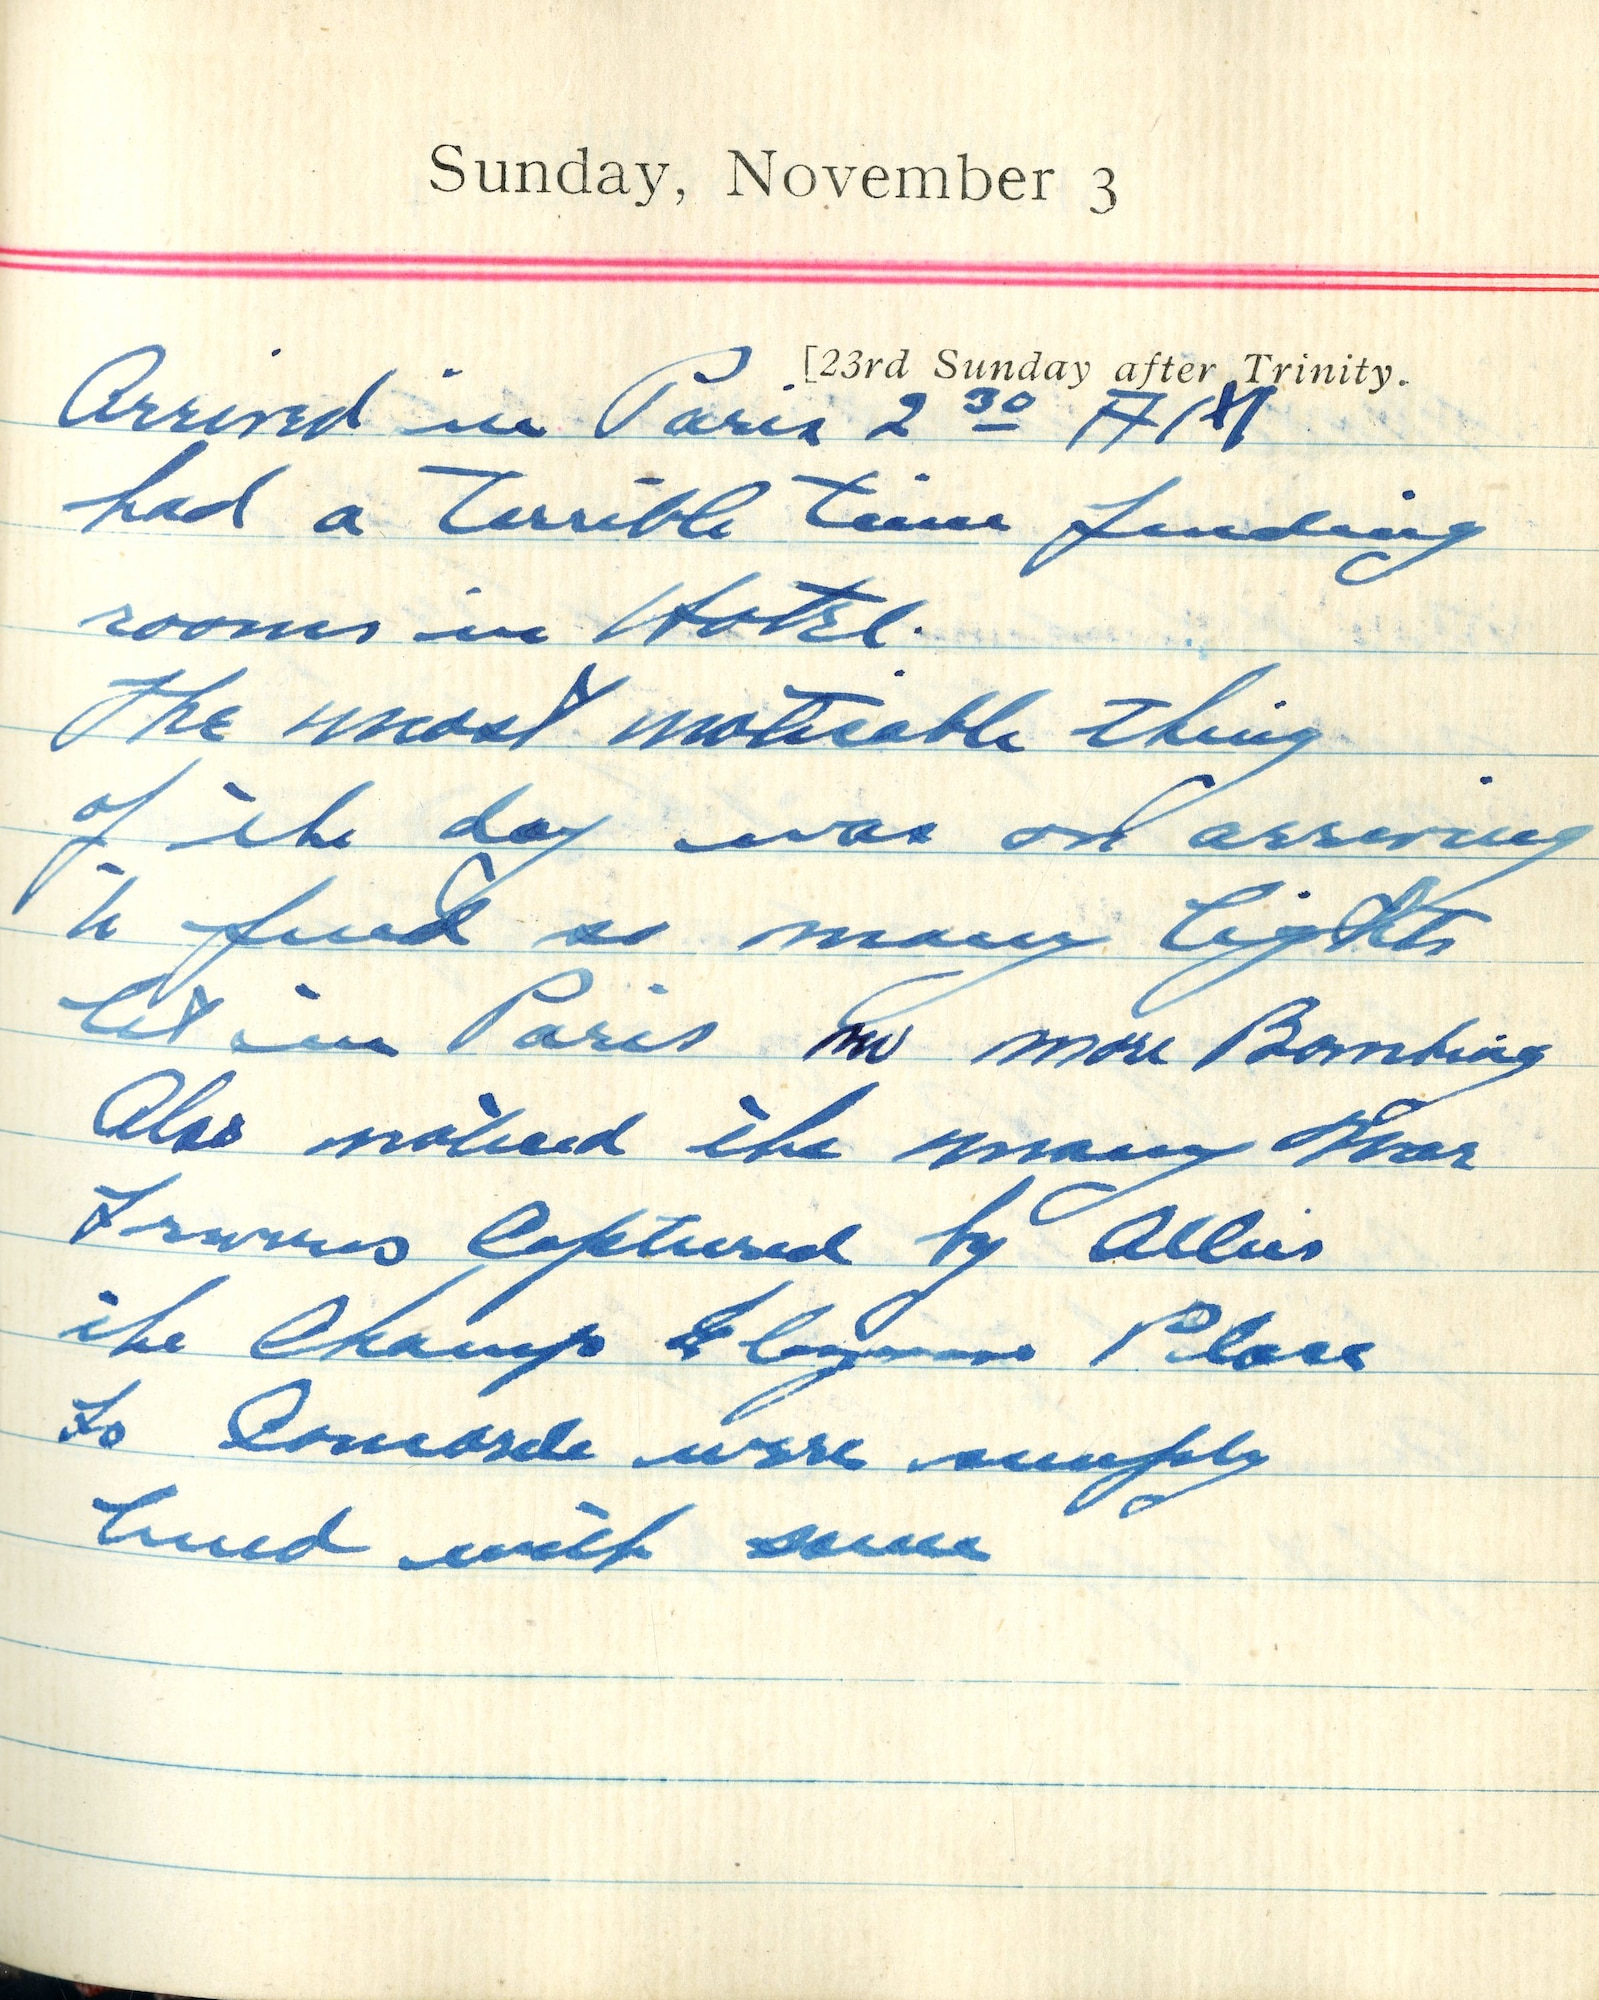 Sunday, November 3
[23rd Sunday after Trinity.
Arrived in Paris 2 30 AM
had a terrible time finding
rooms in Hotel.
The most noticable thing
of the day was on arriving
to find so many lights
lit in Paris no more Bombing
Also noticed the many War
captured by Allies
the Champ Place
Concorde were simply
lined with some